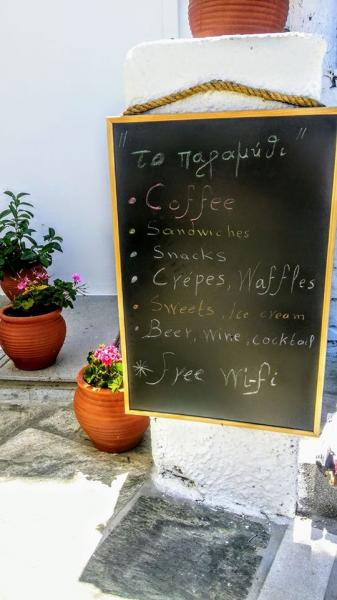 "το παραμύθι"
• Coffee
• Sandwiches
• Snacks
• Crépes, Waffles
• Sweets, ice cream
• Beer, wine, cocktail
* Free wi-fi